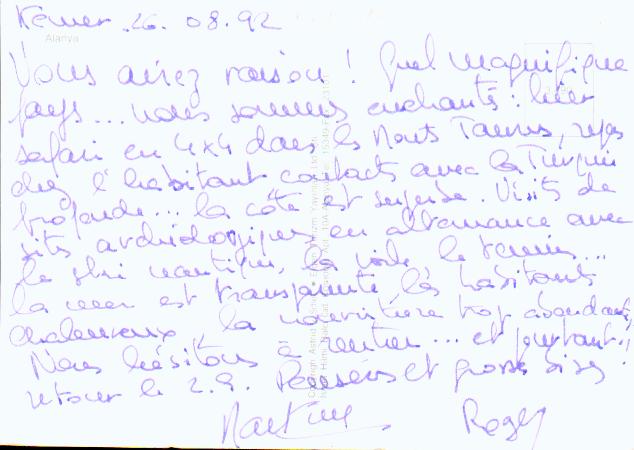 Kemer 26.08.92
Alanya
Vous aviez raison ! Quel magnifique
pays... nous sommes enchantés : hier
safari en 4x4 dans les Monts Taurus, repas
chez l'habitant contacts avec la Turquie
profonde... la côte est superbe. Visite de
sites archéologiques en alternance avec
le ski nautique, la voile le tennis...
la mer est transparente les habitants
chaleureux, la nourriture trop abondante,
Nous hésitons à rentrer... et pourtant..!
retour le 2.9. Pensées et grosses bises !
Martine Roger